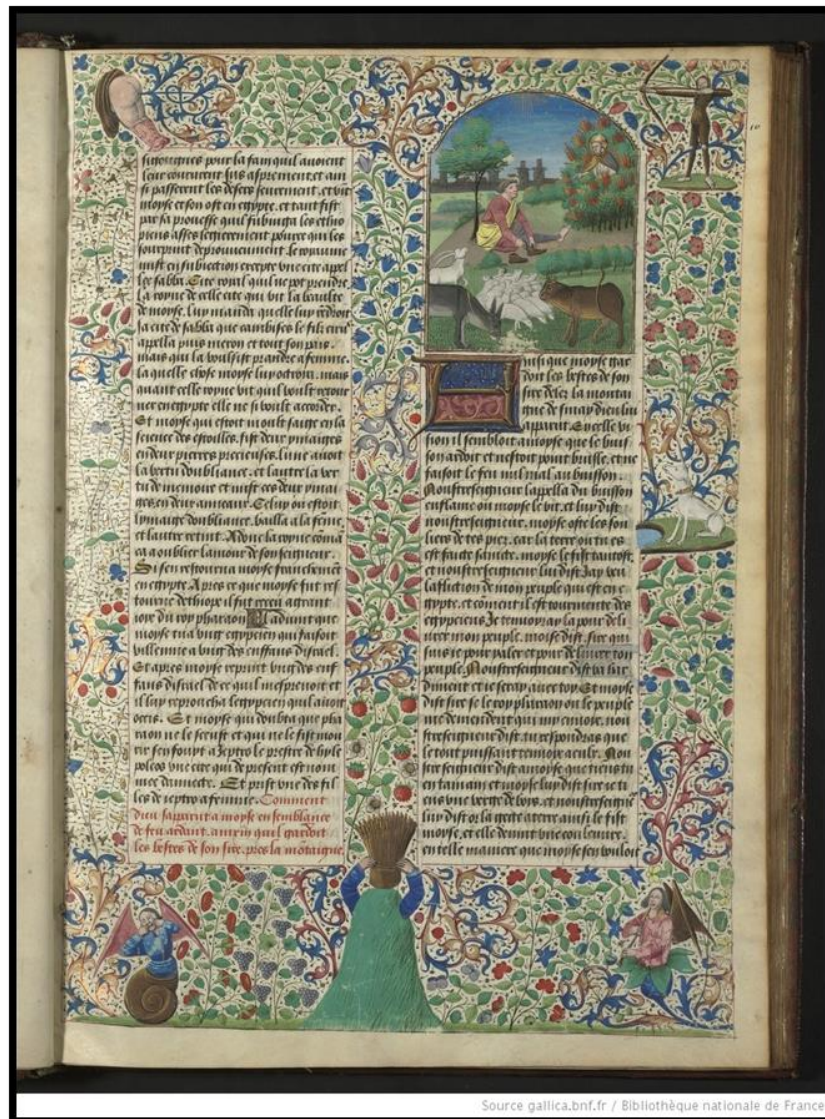 sigoignes pour la fain quil avoient
leur coururent sus asprement et ain
si passerent les desers seurement. et vit
moyse et son ost en egypte. et tant fist
par sa prouesse quil subiuga les ethio
piens asses legierement pource quil les
sourprint despourveuement. le royaume
mist en subiection excepte une cite appel
lee sabba. Cite royal quil ne pot prendre.
La royne de celle cite qui vit la beaulte
de moyse. luy manda quelle luy rendroit
la cite de sabba que cambises le filz ciru
appella puis meron et tout son pais.
mais quil la voulsist prandre a femme.
la quelle chose moyse luy octroia. mais
quant celle royne vit quil voult retour
ner en egypte elle ne si voult accorder.
Et moyse qui estoit moult saige en la
science des estoilles. fist deux ymaiges
en deux pierres precieuses. lune avoit
la vertu doubliance. et lautre la ver
tu de memoire et mist ces deux ymai
ges en deux anneaux. Celuy ou estoit
lymaige doubliance. bailla a sa feme
et lautre retint. Adonc la royne coma
ca a oublier lamour de son seigneur.
Si sen retourna moyse franchement
en egypte. Apres ce que moyse fut ret
tourne dethiope il fut receu a grant
ioye du roy pharaon Il advint que
moyse tua ung egypcien qui faisoit
villennie a ung des enffans disrael.
Et apres moyse reprint ung des enf
fans disrael de ce quil mesprenoit et
il luy reproucha legypcien quil avoit
occis. Et moyse qui doubta que pha
raon ne le sceust et quil ne le fist mou
rir senfouyt a Jeptro le prestre de
poleos une cite qui de present est nom
mee damiecte. Et prist une des fil
les de ieptro a femme. Comment
dieu saparut a moyse en semblance
de feu ardant. ainxin quil gardoit
les bestes de son sire. pres la motaigne.
Ainsi que moyse gar
doit les bestes de son
sire delez la montai
gne de sinay dieu lui
apparut. En celle vi
sion il sembloit a moyse que le buis
son ardoit et nestoit point brusle. et ne
faisoit le feu nul mal au buisson.
Noustreseigneur lappella du buisson
enflame ou moyse le vit. et luy dist
noustreseigneur. moyse oste les sou
liers de tes piez. car la terre ou tu es
est saige saincte. moyse le fist tantost.
et noustreseigneur lui dist Jay veu
laffliction de mon peuple qui est en e
gypte. et coment il est tourmente des
egypciens Je tenvoiray la pour deli
vrer mon peuple. moise dist. sire qui
suis ie pour paler et pour delivrer ton
peuple. Noustreseigneur dist va har
diment et ie seray avec toy. Et moyse
dist sire se roy pharaon ou le peuple
me demendent qui my envoie. nou
streseigneur dist. tu respondras que
le tout puissant tenvoie a eulx. Nou
streseigneur dist a moyse que tiens tu
en ta main et moyse luy dist sire ie ti
ens une verge de bois. et noustreseigneur
luy dist or la gecte a terre ainsi le fist
moyse. et elle devint une couleuvre.
en telle maniere que moyse sen vouloit
10
Source gallica.bnf.fr / Bibliothèque nationale de France